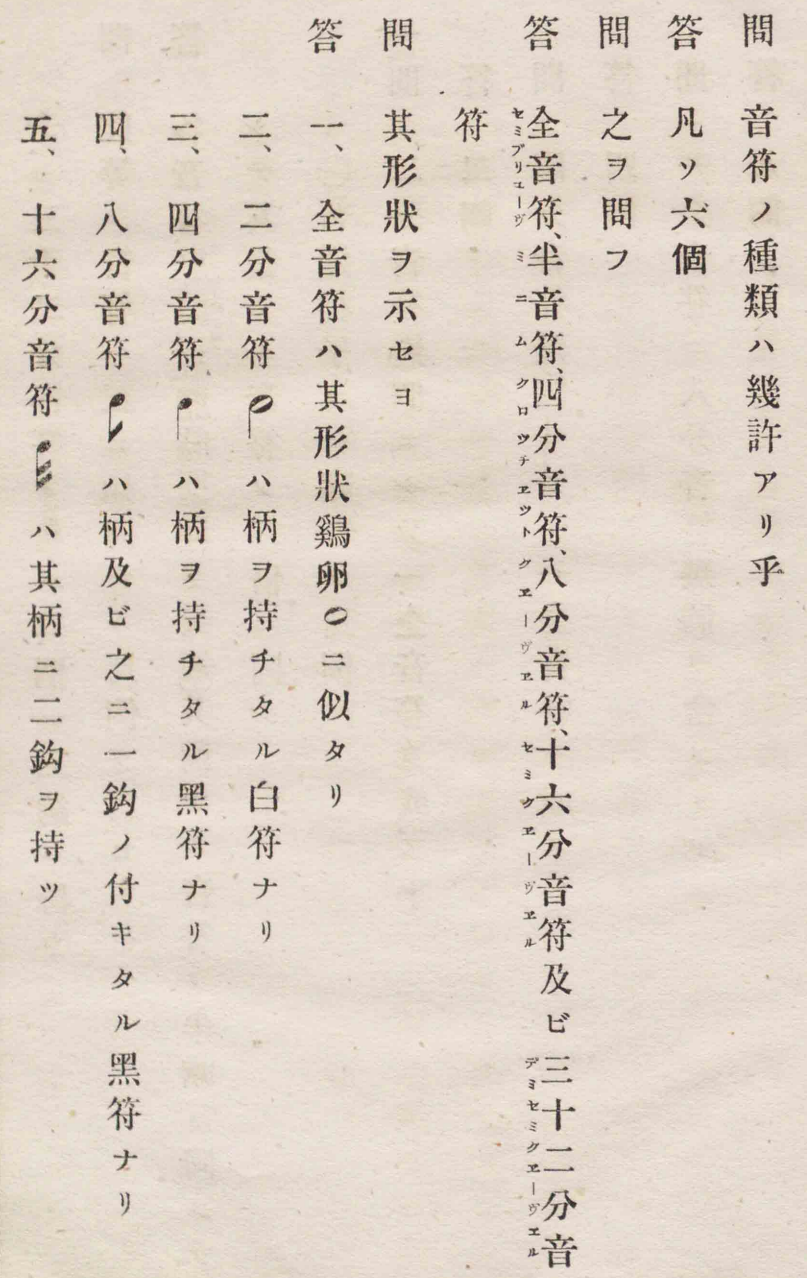 問　音符ノ種類ハ幾許アリ乎
答　凡ソ六個
問　之ヲ問フ
答　全音符、半音符、四分音符、八分音符、十六分音符及ビ三十二分音
セミブリューヴ ミニム クロツチヱツト クヱーヴヱル セミクヱーヴヱル デミセミクヱーヴヱル
符
問　其形狀ヲ示セヨ
答　一、全音符ハ其形狀鷄卵ニ似タリ
二、二分音符ハ柄ヲ持チタル白符ナリ
三、四分音符ハ柄ヲ持チタル黑符ナリ
四、八分音符ハ柄及ビ之ニ一鈎ノ付キタル黑符ナリ
五、十六分音符ハ其柄ニ二鈎ヲ持ツ